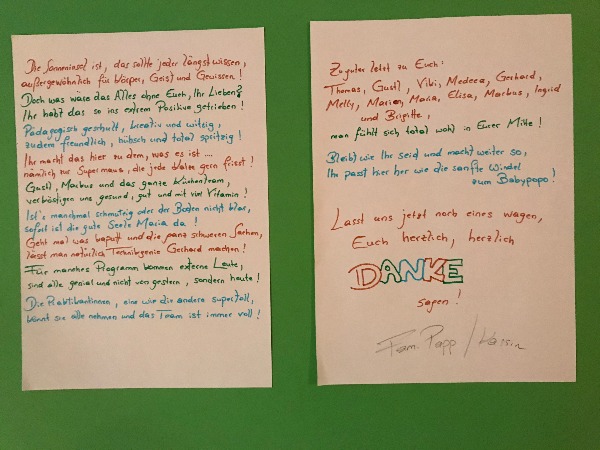 Die Sonneninsel ist, das sollte jeder längst wissen,
außergewöhnlich für Körper, Geist und Gewissen!
Doch was wäre das Alles ohne Euch, Ihr Lieben?
Ihr habt das so ins extrem Positive getrieben!
Pädagogisch geschult, kreativ und witzig,
zudem freundlich, hübsch und total spritzig!
Ihr macht das hier zu dem, was es ist ....
nämlich zur Supermaus, die jede Katze gern frisst!
Gustl, Markus und das ganze Küchenteam,
verköstigen uns gesund, gut und mit viel Vitamin!
Ist's manchmal schmutzig oder der Boden nicht klar,
sofort ist die gute Seele Maria da!
Geht mal was kaputt und die ganz schweren Sachen,
lässt man natürlich Technikgenie Gerhard machen!
Für manches Programm kommen externe Leute,
sind alle genial und nicht von gestern, sondern heute!
Die Praktikantinnen, eine wie die andere supertoll,
könnt sie alle nehmen und das Team ist immer voll!
Zu guter Letzt zu Euch:
Thomas, Gustl, Vibi, Medeea, Gerhard,
Melly, Marion, Maria, Elisa, Markus, Ingrid
und Brigitte,
man fühlt sich total wohl in Eurer Mitte!
Bleibt wie Ihr seid und macht weiter so,
Ihr passt hier her wie die sanfte Windel
zum Babypopo!
Lasst uns jetzt noch eines wagen,
Euch herzlich, herzlich
DANKE
sagen!
Fam. Papp /